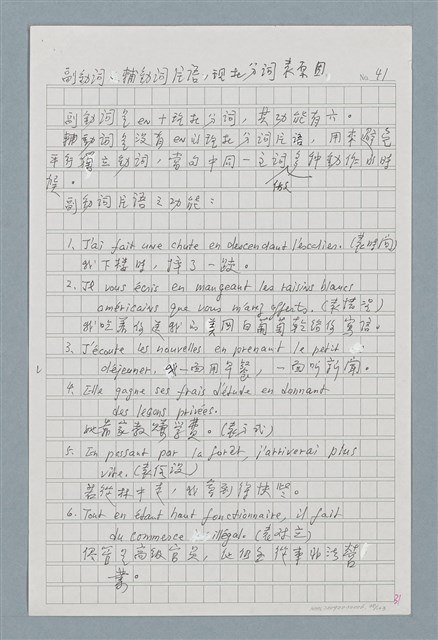 副動词、輔動词片语,現在分词表原因
No. 41
副動词是en+現在分词,其功能有六。
輔動词是没有en的現在分词片语,用來避免
平行獨立動词,當句中同一主词多种動作的時
做
候。
副動词片语之功能:
1. J'ai fait une chute en descendant l'escalier. (表時间)
我下樓時,摔了一跤。
2. Je vous écris en mangeant les raisins blancs
américains que vous m'avez offerts. (表情況)
我吃着你送我的美国白葡萄乾给你寫信。
3. J'écoute les nouvelles en prenant le petit
déjeuner. 我一面用午餐,一面听新闻。
4. Elle gagne ses frais d'étude en donnant
des leçons privées.
她当家教賺學費。(表方式)
5. En passant par la forêt, j'arriverai plus
vite. (表假设)
若從林中走,我會到得快些。
6. Tout en étant haut fonctionnaire, il fait
du commerce illégal. (表对立)
儘管是高級官員,他但是從事非法營
業。